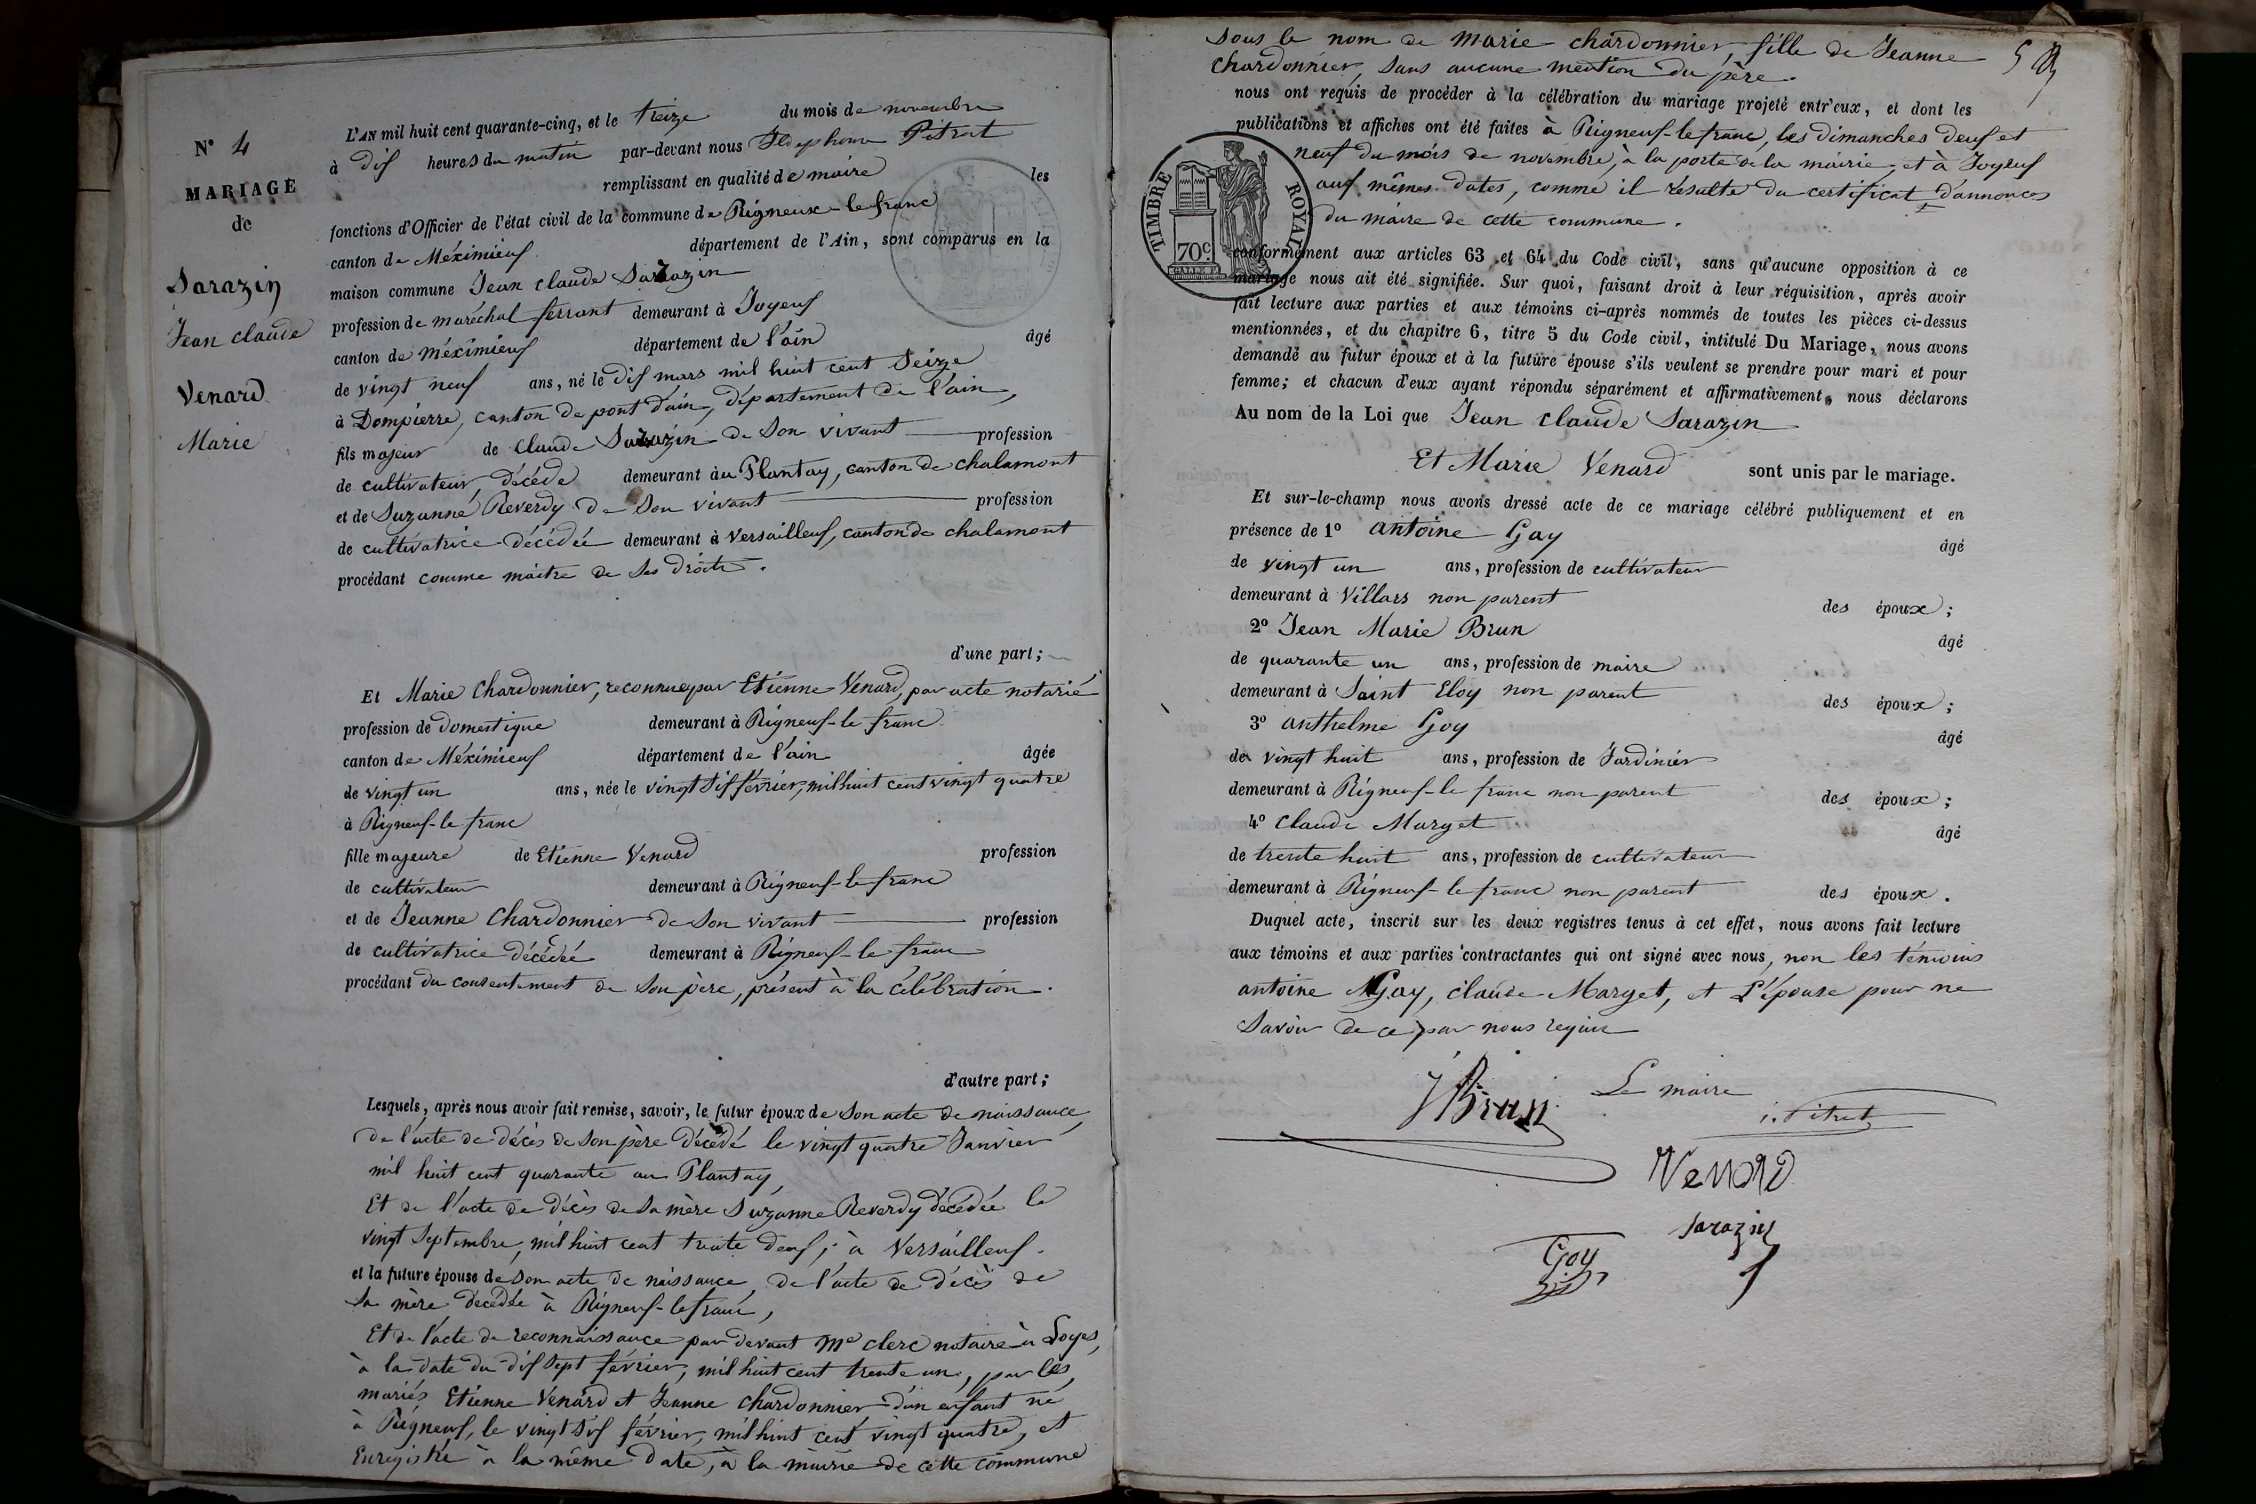 N° 4
MARIAGE
de
Sarazin
Jean Claude
Venard
Marie
L'AN mil huit cent quarante-cinq, et le treize du mois de novembre
à dix heures du matin par-devant nous Ildephonse Pitrat
remplissant en qualité de maire les
fonctions d'Officier de l'état civil de la commune de Rigneux-le franc
canton de Méximieux département de l'Ain, sont comparus en la
maison commune Jean Claude Sarazin
profession de maréchal ferrant demeurant à Joyeux
canton de méximieux département de l'ain âgé
de vingt neuf ans, né le dix mars mil huit cent Seize
à Dompierre, canton de pont d'ain, département de l'ain,
fils majeur de Claude Sarazin de Son vivant profession
de cultivateur décédé demeurant au Plantay, canton de chalamont
et de Suzanne Reverdy de Son vivant profession
de cultivatrice décédée demeurant à Versailleux, canton de chalamont
procédant comme maître de Ses droits.
d'une part;
Et Marie Chardonnier, reconnue par Etienne Venard, par acte notarié
profession de domestique demeurant à Rigneux-le franc
canton de Méximieux département de l'ain âgée
de vingt un ans, née le vingt Six février, mil huit cent vingt quatre
à Rigneux-le franc
fille majeure de Etienne Venard profession
de cultivateur demeurant à Rigneux-le franc
et de Jeanne Chardonnier de Son vivant profession
de cultivatrice décédée demeurant à Rigneux-le franc
procédant du consentement de Son père, présent à la célébration.
d'autre part;
Lesquels, après nous avoir fait remise, savoir, le futur époux de Son acte de naissance,
de l'acte de décès de Son père décédé le vingt quatre Janvier
mil huit cent quarante au Plantay,
Et de l'acte de décès de Sa mère Suzanne Reverdy décédée le
vingt Septembre, mil huit cent trente deux, à Versailleux.
et la future épouse de Son acte de naissance, de l'acte de décès de
Sa mère décédée à Rigneux-le franc,
Et de l'acte de reconnaissance par devant Me clerc notaire à Loyes,
à la date du dix Sept février, mil huit cent trente un, par les
mariés Etienne Venard et Jeanne Chardonnier d'un enfant né
à Rigneux, le vingt Six février, mil huit cent vingt quatre, et
Enregistré à la même date, à la mairie de cette commune
Sous le nom de Marie Chardonnier, fille de Jeanne
Chardonnier, Sans aucune mention du père.
nous ont requis de procéder à la célébration du mariage projeté entr'eux, et dont les
publications et affiches ont été faites à Rigneux-le franc, les dimanches deux et
neuf du mois de novembre, à la porte de la mairie, et à Joyeux
aux mêmes dates, comme il résulte du certificat d'annonces
du maire de cette commune.
TIMBRE ROYAL
70c
conformément aux articles 63 et 64 du Code civil, sans qu'aucune opposition à ce
mariage nous ait été signifiée. Sur quoi, faisant droit à leur réquisition, après avoir
fait lecture aux parties et aux témoins ci-après nommés de toutes les pièces ci-dessus
mentionnées, et du chapitre 6, titre 5 du Code civil, intitulé Du Mariage, nous avons
demandé au futur époux et à la future épouse s'ils veulent se prendre pour mari et pour
femme; et chacun d'eux ayant répondu séparément et affirmativement, nous déclarons
Au nom de la Loi que Jean Claude Sarazin
Et Marie Venard sont unis par le mariage.
Et sur-le-champ nous avons dressé acte de ce mariage célébré publiquement et en
présence de 1° Antoine Gay âgé
de vingt un ans, profession de cultivateur
demeurant à Villars non parent des époux;
2° Jean Marie Brun âgé
de quarante un ans, profession de maire
demeurant à Saint Eloy non parent des époux;
3° Anthelme Goy âgé
de vingt huit ans, profession de Jardinier
demeurant à Rigneux-le franc non parent des époux;
4° Claude Marget âgé
de trente huit ans, profession de cultivateur
demeurant à Rigneux-le franc non parent des époux.
Duquel acte, inscrit sur les deux registres tenus à cet effet, nous avons fait lecture
aux témoins et aux parties contractantes qui ont signé avec nous, non les témoins
antoine Gay, claude Marget, et L'épouse pour ne
Savoir de ce par nous requis
JBrun Le maire
i. Pitrat
Venard
Sarazin
Goy